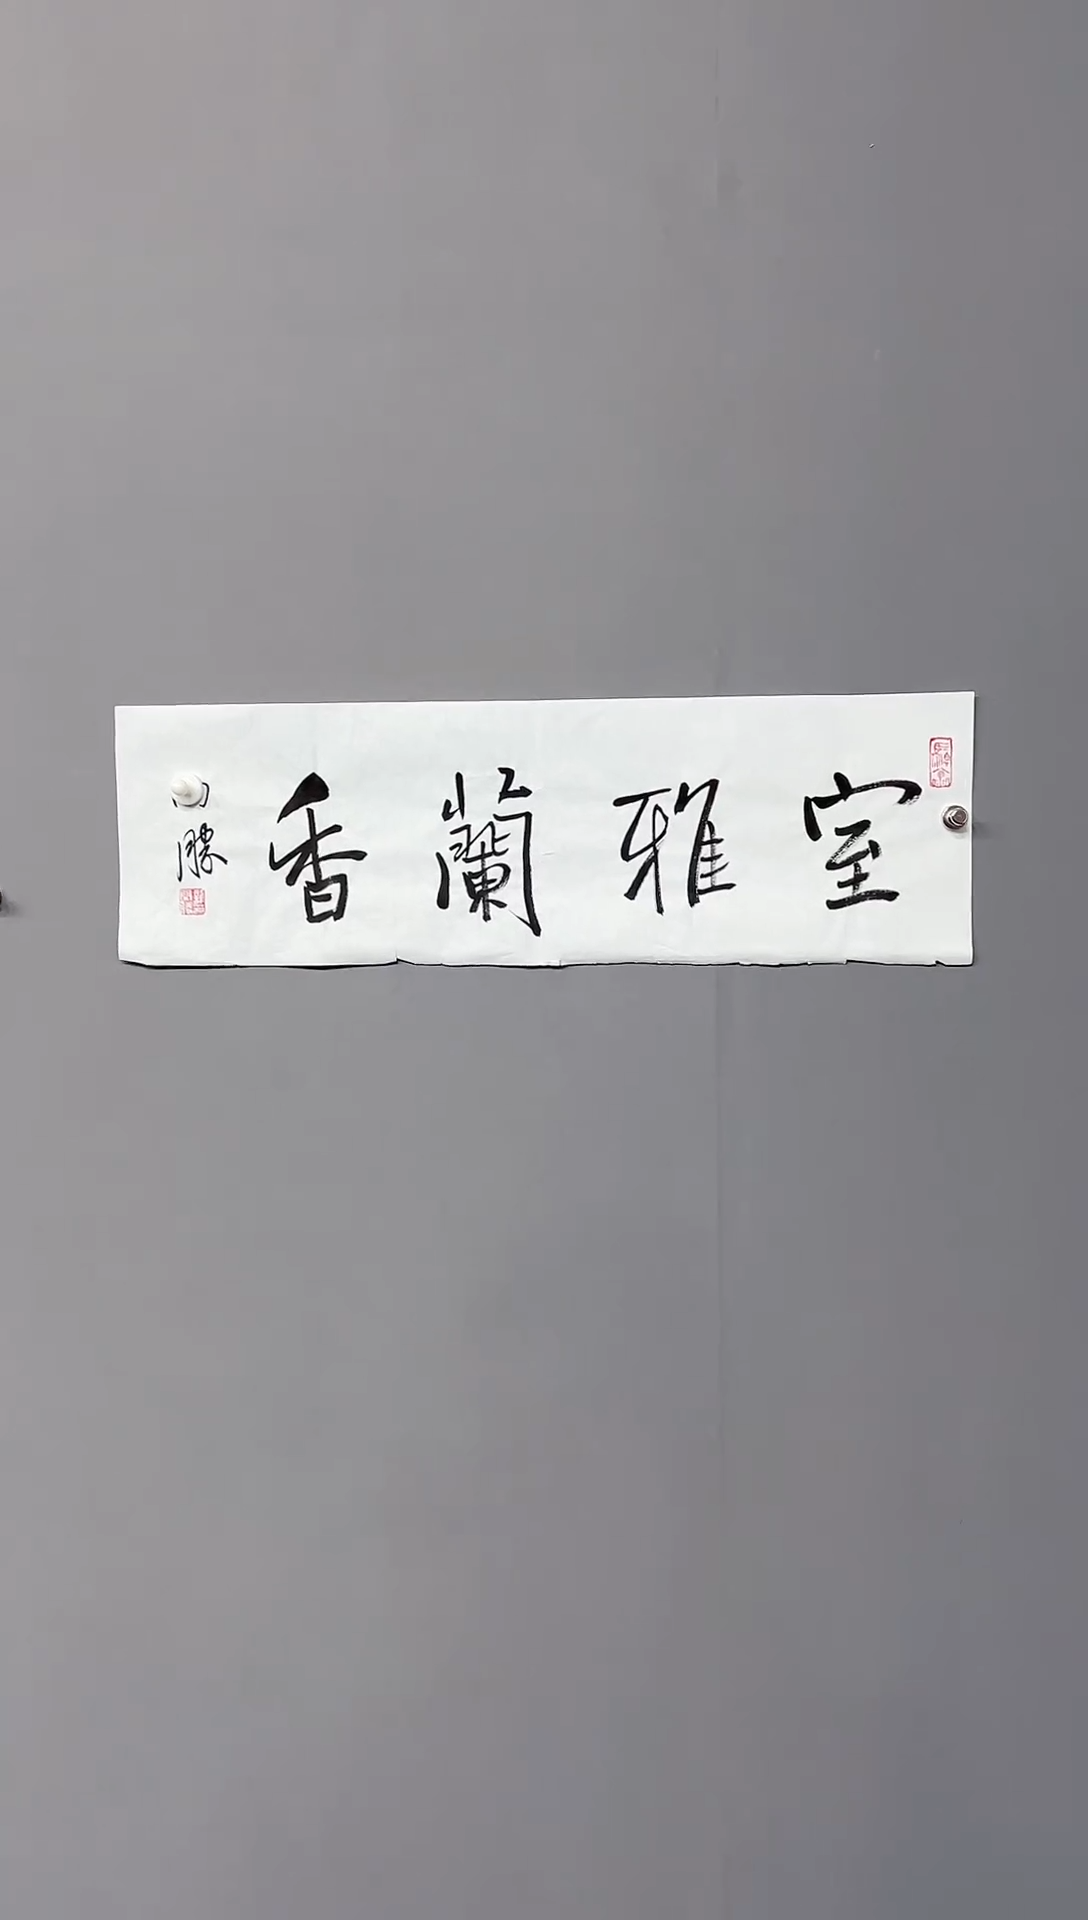 室雅蘭香
勝